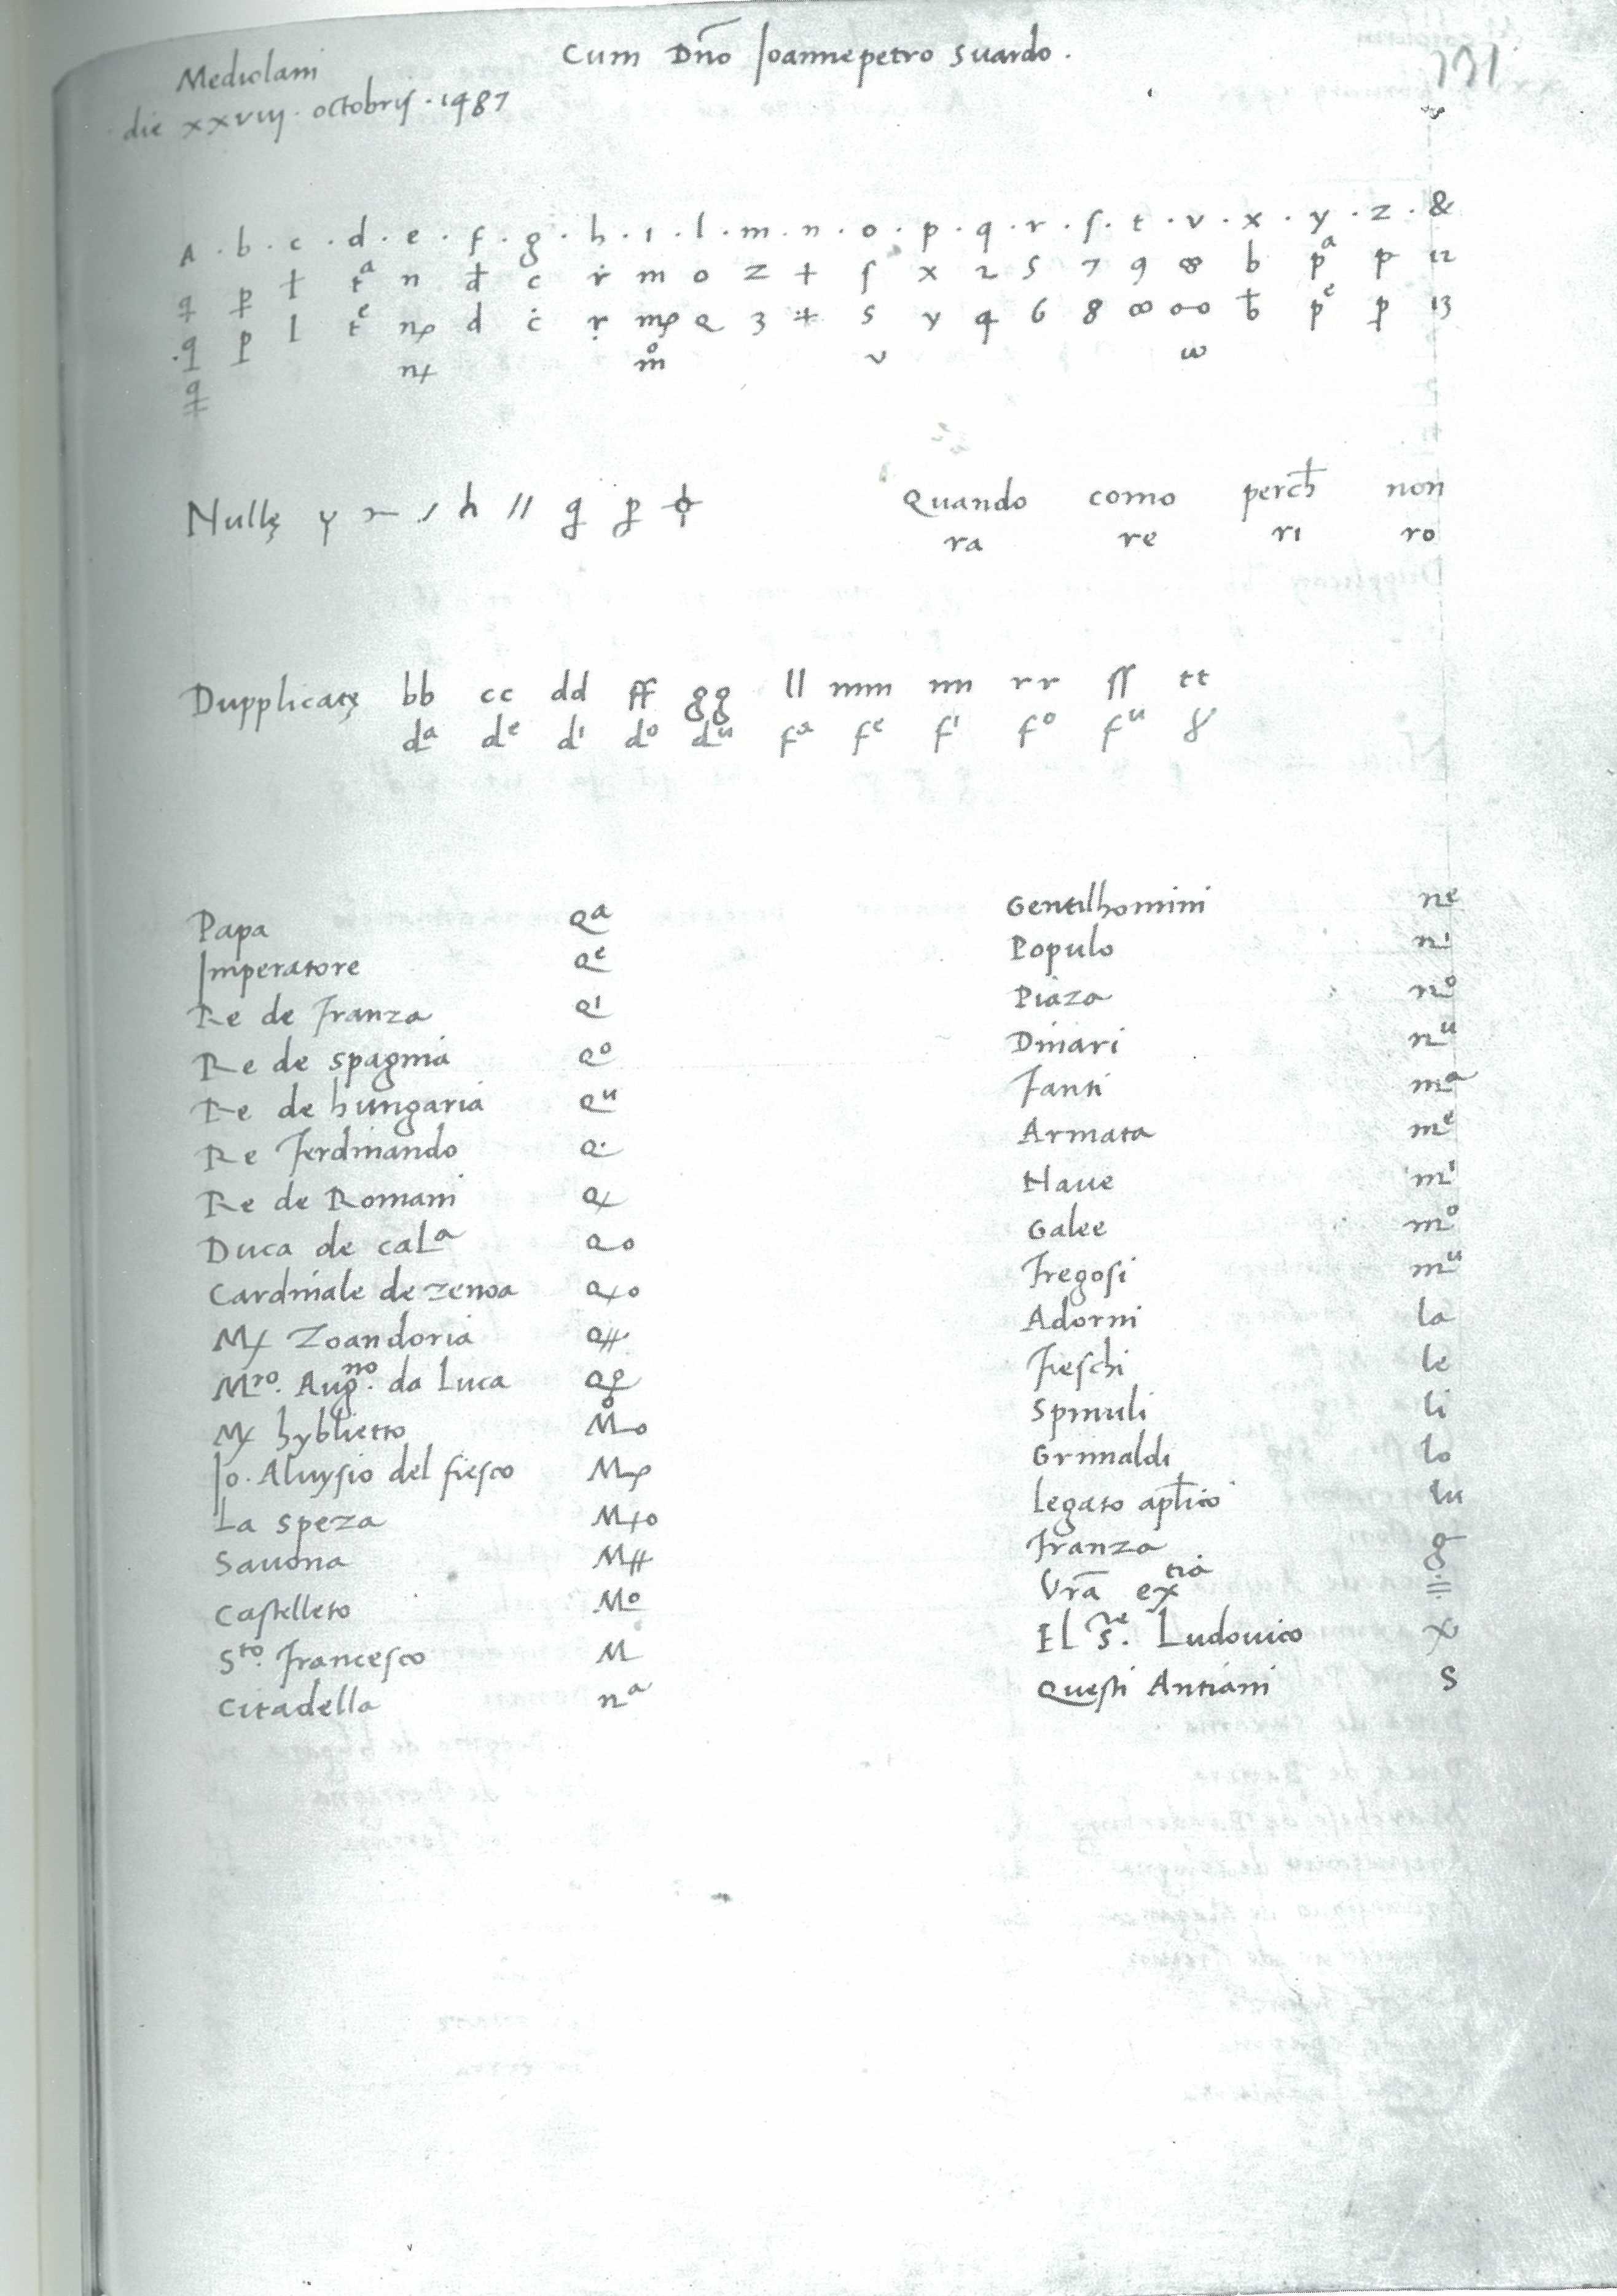 Cum Dño Joannepetro Suardo.
131
Mediolani
die xxviij. octobris. 1487
A . b . c . d . e . f . g . h . i . l . m . n . o . p . q . r . s . t . v . x . y . z . &
n c m o z + s x 2 5 7 9 b pᵃ p 12
p l tᵉ d ċ 3 s y q 6 8 pᵉ 13
v w
Nullę
Quando como perch non
ra re ri ro
Dupplicatę bb cc dd ff gg ll mm nn rr ss tt
dᵃ dᵉ dⁱ dᵒ dᵘ fᵃ fᵉ fⁱ fᵒ fᵘ
Papa Qᵃ
Imperatore Qᵉ
Re de Franza Qⁱ
Re de spagnia Qᵒ
Re de hungaria Qᵘ
Re Ferdinando Q·
Re de Romani
Duca de calᵃ Qo
Cardinale de zenoa
Zoandoria
Mʳᵒ. Augⁿᵒ. da Luca
hyblietto
Jo. Aluysio del fiesco
La speza
Sauona
Castelleto Mᵒ
Sᵗᵒ. Francesco M
Citadella nᵃ
Gentilhomini nᵉ
Populo nⁱ
Piaza nᵒ
Dinari nᵘ
Fanti mᵃ
Armata mᵉ
Naue mⁱ
Galee mᵒ
Fregosi mᵘ
Adorni la
Fieschi le
Spinuli li
Grimaldi lo
Legato aplico lu
Franza g
Vrã exᵗⁱᵃ
El Sʳᵉ. Ludouico x
Questi Antiani s